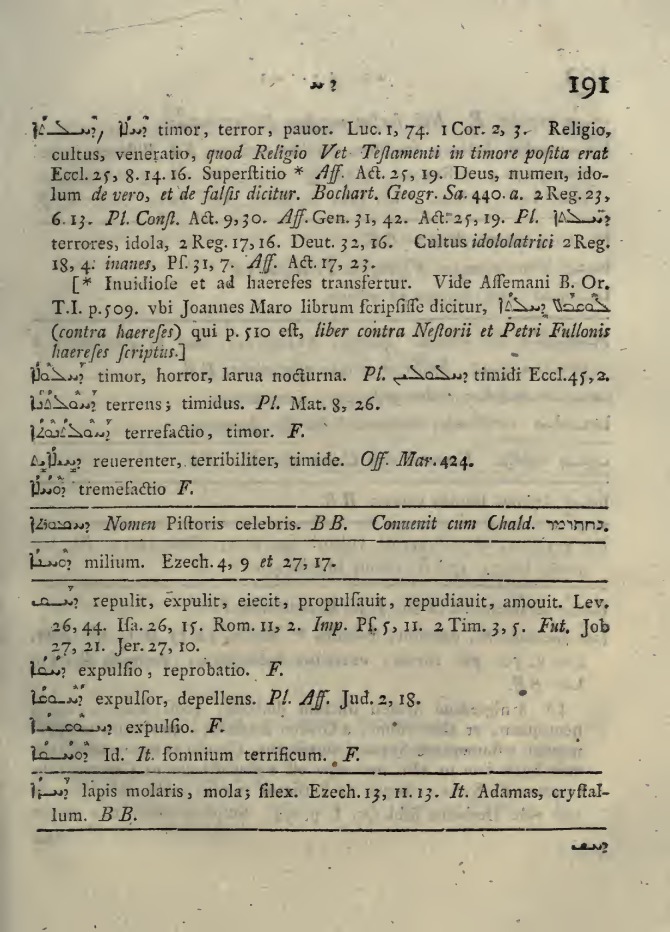 ܕܚ 191
ܕܚܠܬܐ, ܕܚܠܐ timor, terror, pauor. Luc. 1, 74. 1 Cor. 2, 3. Religio,
cultus, veneratio, quod Religio Vet Teſtamenti in timore poſita erat
Eccl. 25, 8. 14. 16. Superſtitio * Aff. Act. 25, 19. Deus, numen, ido-
lum de vero, et de falſis dicitur. Bochart. Geogr. Sa. 440. a. 2 Reg. 23,
6. 13. Pl. Conſt. Act. 9, 30. Aff. Gen. 31, 42. Act. 25, 19. Pl. ܕܚܠܬܐ
terrores, idola, 2 Reg. 17, 16. Deut. 32, 16. Cultus idololatrici 2 Reg.
18, 4. inanes, Pſ. 31, 7. Aff. Act. 17, 23.
[* Inuidioſe et ad haereſes transfertur. Vide Aſſemani B. Or.
T. I. p. 509. vbi Joannes Maro librum ſcripſiſſe dicitur, ܕܚܠܬܐ
(contra haereſes) qui p. 510 eſt, liber contra Neſtorii et Petri Fullonis
haereſes ſcriptus.]
ܕܚܠܘܐ timor, horror, larua nocturna. Pl. timidi Eccl. 45, 2.
ܕܚܘܠܬܢܐ terrens; timidus. Pl. Mat. 8, 26.
ܕܚܘܠܬܢܘܬܐ terrefactio, timor. F.
ܕܚܝܠܐܝܬ reuerenter, terribiliter, timide. Off. Mar. 424.
ܕܘܚܠܐ tremefactio F.
Nomen Piſtoris celebris. B B. Conuenit cum Chald. נחתומר.
ܕܘܚܢܐ milium. Ezech. 4, 9 et 27, 17.
ܕܚܩ repulit, expulit, eiecit, propulſauit, repudiauit, amouit. Lev.
26, 44. Iſa. 26, 15. Rom. 11, 2. Imp. Pſ. 5, 11. 2 Tim. 3, 5. Fut. Job
27, 21. Jer. 27, 10.
ܕܚܩܐ expulſio, reprobatio. F.
ܕܚܘܩܐ expulſor, depellens. Pl. Aff. Jud. 2, 18.
ܕܚܘܩܝܐ expulſio. F.
ܕܘܚܩܐ Id. It. ſomnium terrificum. F.
lapis molaris, mola; ſilex. Ezech. 13, 11. 13. It. Adamas, cryſtal-
lum. B B.